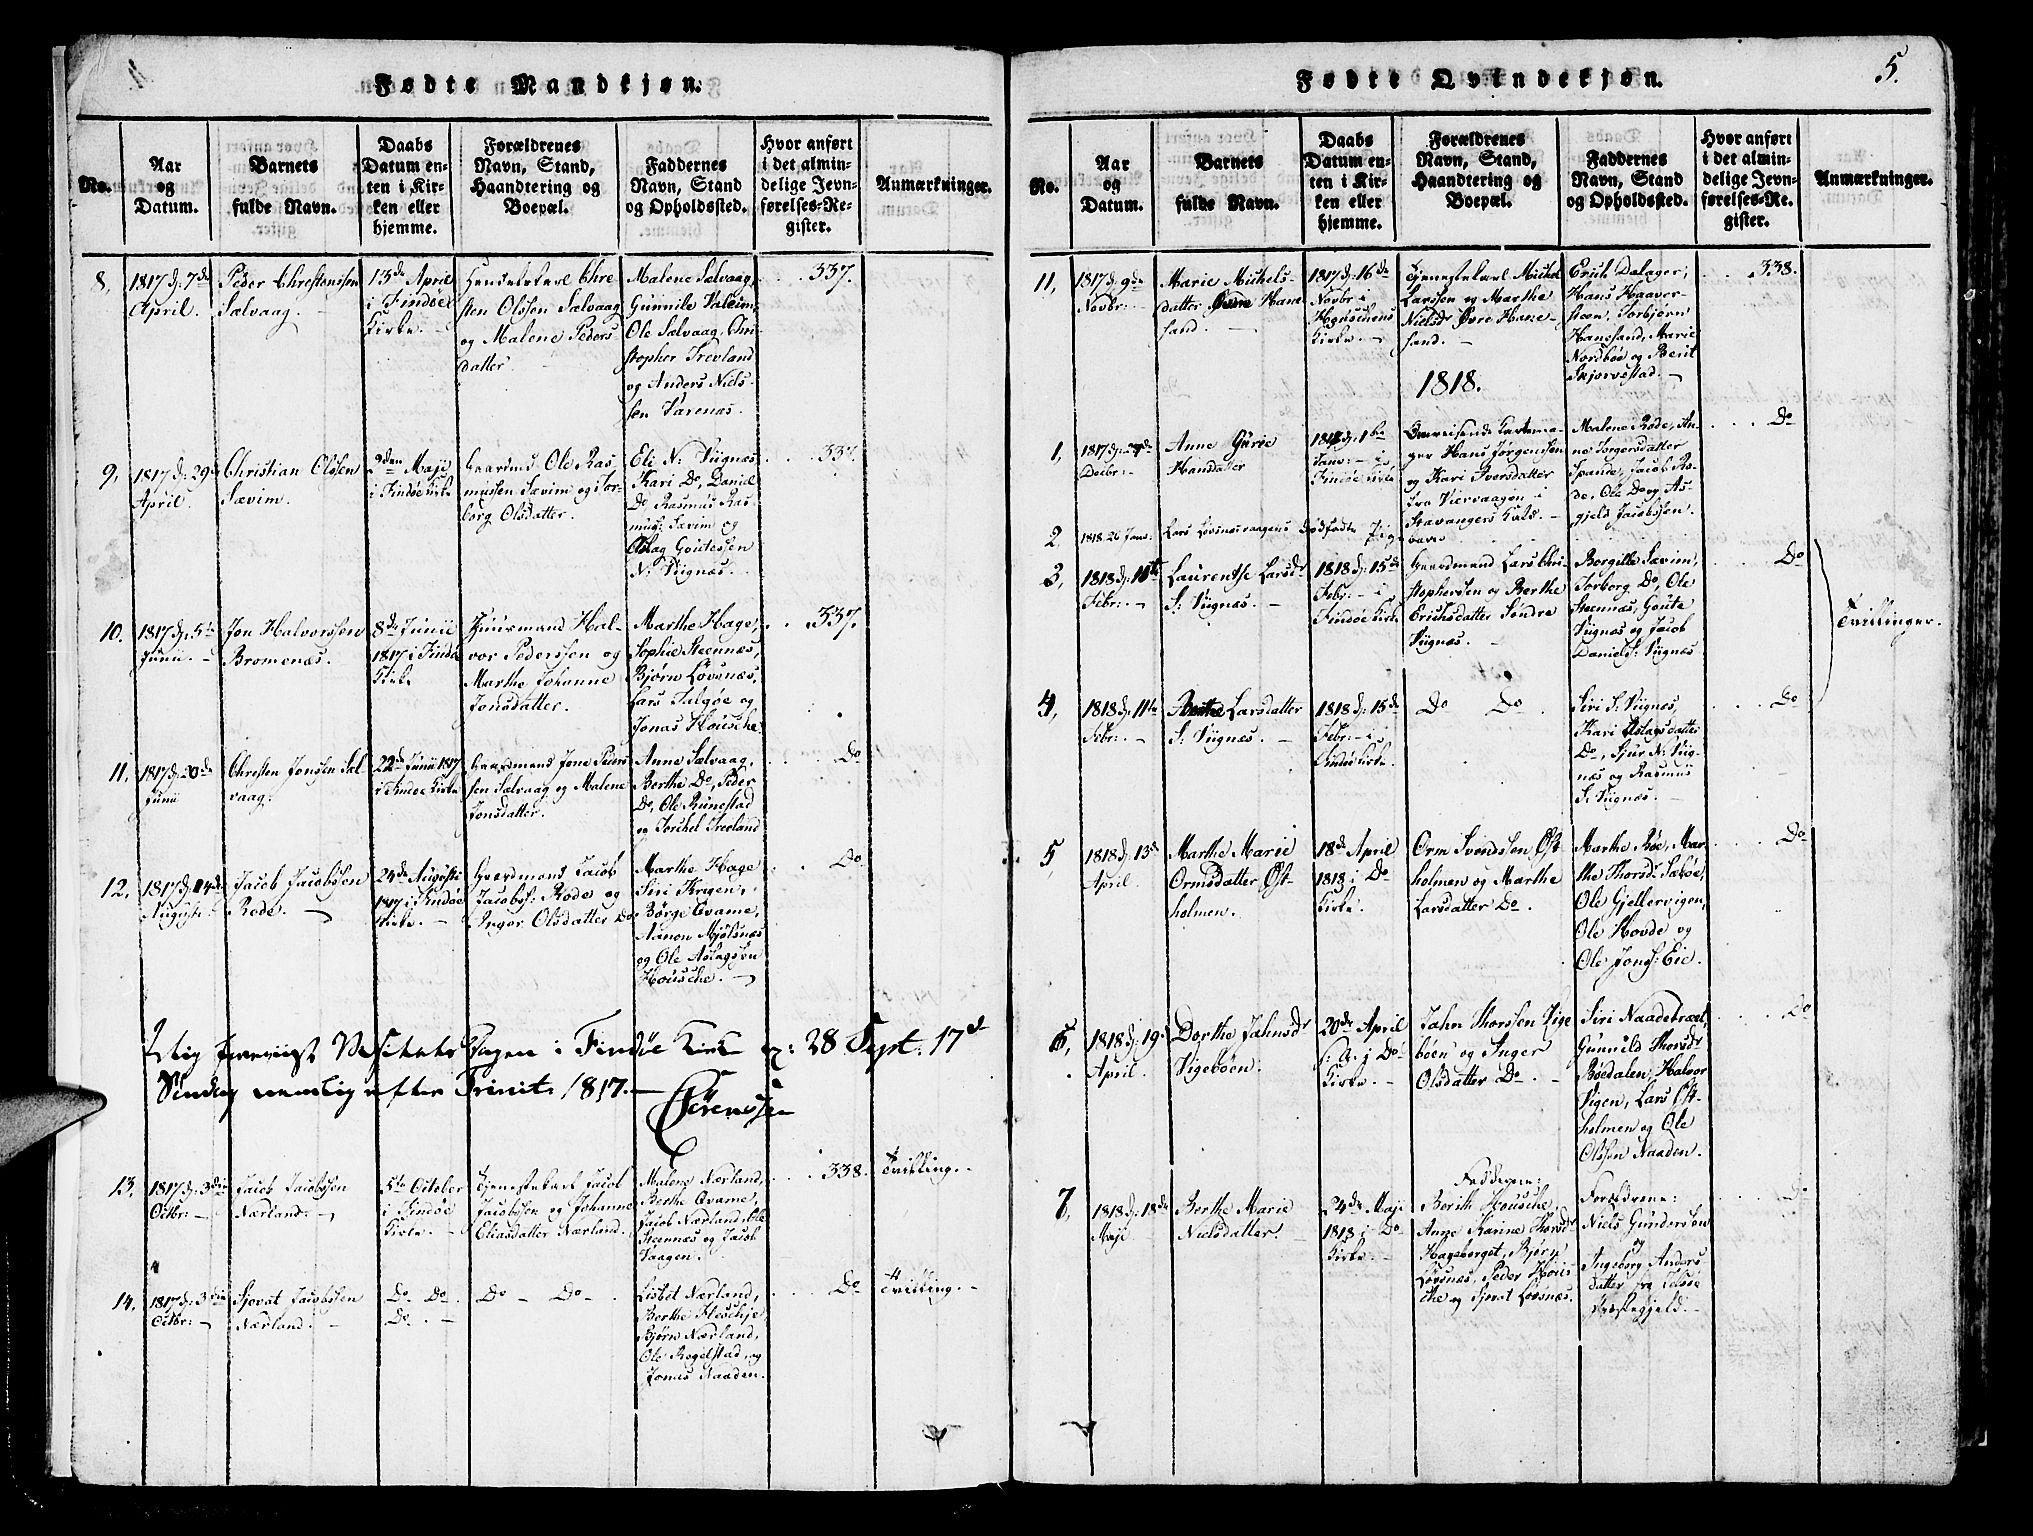 Fødte Mandkjøn.
No.
Aar
og
Datum.
Barnets
fulde Navn.
Daabs
Datum en-
ten i Kir-
ken eller
hjemme.
Forældrenes
Navn, Stand,
Haandtering og
Boepæl.
Faddernes
Navn, Stand
og Opholdssted.
Hvor anført
i det almin-
delige Jevn-
førelses-Re-
gister.
Anmærkninger.
8,
1817 d: 7de
April.
Peder Christenssen
Sælvaag.
13de April
i Findøe
Kirke.
Chri-
sten Olssen Sælvaag
og Malene Peders
datter.
Malene Sælvaag,
Gunnile Valeim,
Ole Sælvaag, Chri-
stopher Trevland
og Anders Niels-
sen Varenæs.
337.
9,
1817 d: 29de
April.
Christian Olssen
Sævim.
2den Maji
i Findøe Kirke
Gaardmd Ole Ras
mussen Sævim og Tor-
borg Olsdatter.
Eli N: Viignæs
Kari Do, Daniel
Do Rasmus Ras
mus: Sævim og
Oslag Goutessen
N: Viignæs.
337.
10.
1817 d: 5te
Junii.
Jon Halvorssen
Bromenæs.
8de Junii
1817 i Findøe
Kirke
Huusmand Hal-
vor Pederssen og
Marthe Johanne
Jonsdatter.
Marthe Hage,
Sophie Steennæs,
Bjørn Løvsnæs,
Lars Talgøe og
Jonas Housche.
337.
11,
1817 d: 20de
Junii
Christen Jonssen Sæl
vaag.
22de Junii 1817
i Findøe Kirke
Gaardmand Jone Peder
sen Sælvaag og Malene
Jonsdatter.
Anne Sælvaag,
Berthe Do, Peder
Do, Ole Runestad
og Torchel Trevland
Do
12,
1817 d: 14de
August.
Jacob Jacobssen
Rode.
24de Augusti
1817 i Findøe
Kirke.
Gaardmand Jacob
Jacobs: Rode og
Anger Olsdatter Do
Marthe Hage
Siri Kragen,
Børge Qvame,
Aanon Mjølsnæs
og Ole Aslagsøn
Housche.
Do
Visitats Dagen i Findøe Kirke d: 28 Sept: 17d
Søndag nemlig efter Trinit: 1817.
Sørenssen
13,
1817 d: 3die
Octbr:
Jacob Jacobssen
Nærland.
5te October
i Findøe
Kirke.
Tjenestekarl Jacob
Jacobssen og Johanne
Eliasdatter Nærland.
Malene Nærland,
Berthe Qvame,
Jacob Nærland, Ole
Steennæs og Jacob
Vaagen.
338.
Tvilling.
14,
1817 d: 3die
Octbr:
Sjovat Jacobssen
Nærland.
Do Do
Do
Do Do
Lisbet Nærland,
Berthe Hesschje
Bjørn Nærland,
Ole Rogelstad, og
Jonas Naaden.
Do
Tvilling.
5.
Fødte Qvindekjøn.
No.
Aar
og
Datum.
Barnets
fulde Navn.
Daabs
Datum en-
ten i Kir-
ken eller
hjemme.
Forældrenes
Navn, Stand,
Haandtering og
Boepæl.
Faddernes
Navn, Stand
og Opholdssted.
Hvor anført
i det almin-
delige Jevn-
førelses-Re-
gister.
Anmærkninger.
11,
1817 d: 9de
Novbr:
Marie Mickels-
datter Øvre Hane
sand.
1817 d: 16de
Novbr i
Kirke.
Tjenestekarl Mickel
Larssen og Marthe
Nielsdr Øvre Hane-
sand.
Erich Dalager,
Hans Haaver-
steen, Torbjørn
Hanssand, Marie
Nordbøe og Berit
Skjørvestad.
338.
1818.
1,
1817 d: 27de
Decbr:
Anne Gurie
Hansdatter
1818 d: 1te
Janv: i
Findøe Kirke
Hans Jørgenssen
og Kari Iversdatter
fra Viervaagen i
Stavangers
Malene Rode, An-
ne Torgersdatter
Spande, Jacob Ro-
de, Ole Do og As-
gjeld Jacobssen.
Do
2,
1818. 26 Janv:
Lars Løvsnæsvaagens dødfødte Pige
barn
3,
1818 d: 10de
Febr:
Laurentse Larsdr
S: Viignæs.
1818 d: 15de
Febr: i
Findøe Kirke
Gaardmand Lars Chri
stophersen og Berthe
Erichsdatter Søndre
Viignæs.
Borgille Sævim,
Torborg Do, Ole
Steennæs, Goute
Viignæs og Jacob
Daniels: Viignæs
Do
Tvillinger.
4,
1818 d: 11te
Febr:
Berthe Larsdatter
S: Viignæs.
1818 d: 15de
Febr: i
Findøe Kirke.
Do Do
Siri S: Viignæs,
Kari Aslagsdatter
Do, Sjur N: Viig-
næs og Rasmus
S: Viignæs.
Do
5
1818 d: 13de
April.
Marthe Marie
Ormsdatter Øst-
holmen.
18de April
1818 i Do
Kirke.
Orm Svendssen Øst
holmen og Marthe
Larsdatter Do.
Marthe Røe, Mar
the Thorsd: Sæbøe,
Ole Gjellervigen,
Ole Hovde og
Ole Jons: Eie.
Do
6,
1818 d: 19de
April.
Dorthe Jahnsdr
Vigebøen.
20de April
s: A: i Do
Kirke.
Jahn Thorssen Vige
bøen og Anger
Olsdatter Do.
Siri Naadetræet,
Gunnild Thorsdr
Bøedalen, Halvor
Vigen, Lars Øst-
holmen og Ole
Olssen Naaden.
Do
7,
1818 d: 18de
Maji
Berthe Marie
Nielsdatter.
24de Maji
1818 i Do
Kirke.
Faddrene:
Berith Housche,
Anne Karine Thorsdr
Hageberget, Bjørn
Løvsnæs, Peder Hous
che og Sjovat Løvsnæs.
Forældrene:
Niels Gunderssen
og
Ingeborg Anders
datter fra Jelsøe
Præstegjeld.
Do